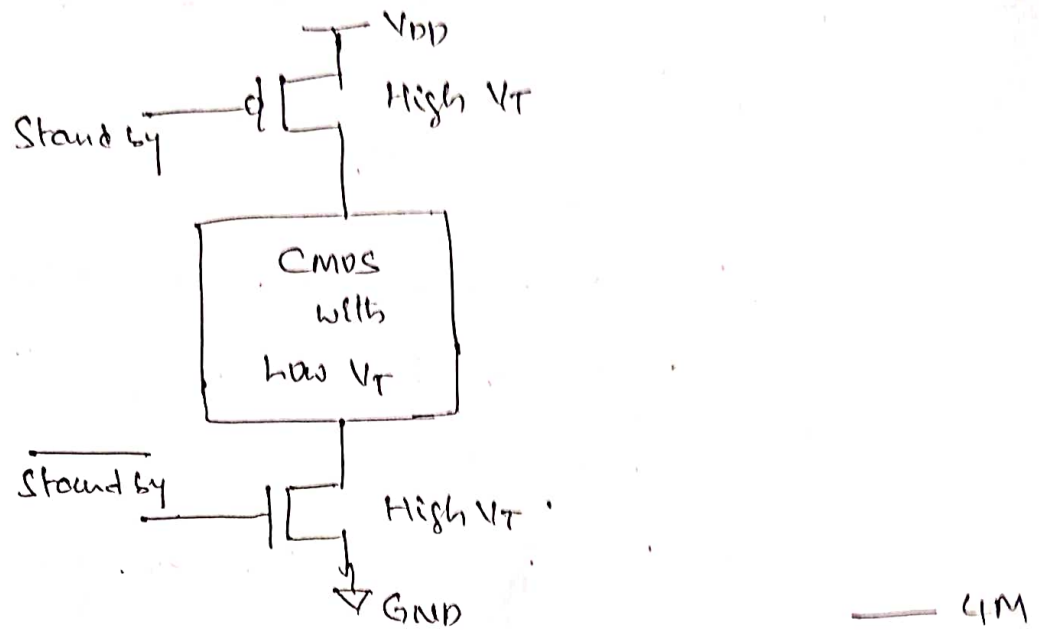 VDD
High VT
Stand by
CMOS
with
Low VT
Stand by
High VT
GND
4M